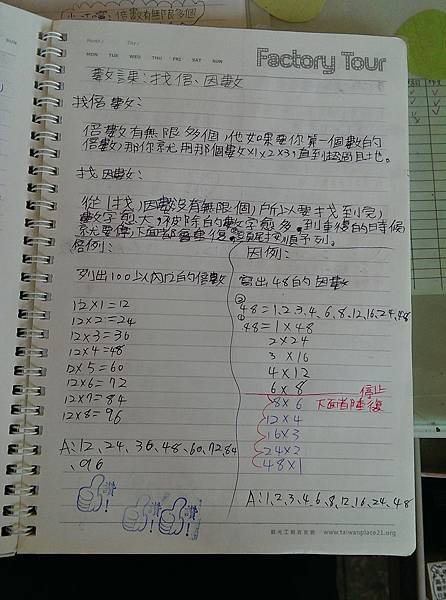 小叮嚀:倍數有無限多個
Month / Day /
MON TUE WED THU FRI SAT SUN
Factory Tour
數課:找倍、因數
找倍數:
倍數有無限多個,他如果要你算一個數的
倍數,那你就用那個數×1×2×3,直到超過目地。
找因數:
從1找,因數沒有無限個,所以要找到完,
數字愈大,被除的數字愈多,到重複的時候
就要停,下面都會重復。
按順予列。
倍例:
列出100以內12的倍數
12×1=12
12×2=24
12×3=36
12×4=48
12×5=60
12×6=72
12×7=84
12×8=96
A:12、24、36、48、60、72、84
、96
讚!
讚!
讚!
因例:
寫出48的因數
② 48=1、2、3、4、6、8、12、16、24、48
① 48=1×48
2×24
3×16
4×12
6×8
停止
8×6
下面都重復
12×4
16×3
24×2
48×1
A:1、2、3、4、6、8、12、16、24、48
觀光工廠自在遊 www.taiwanplace21.org